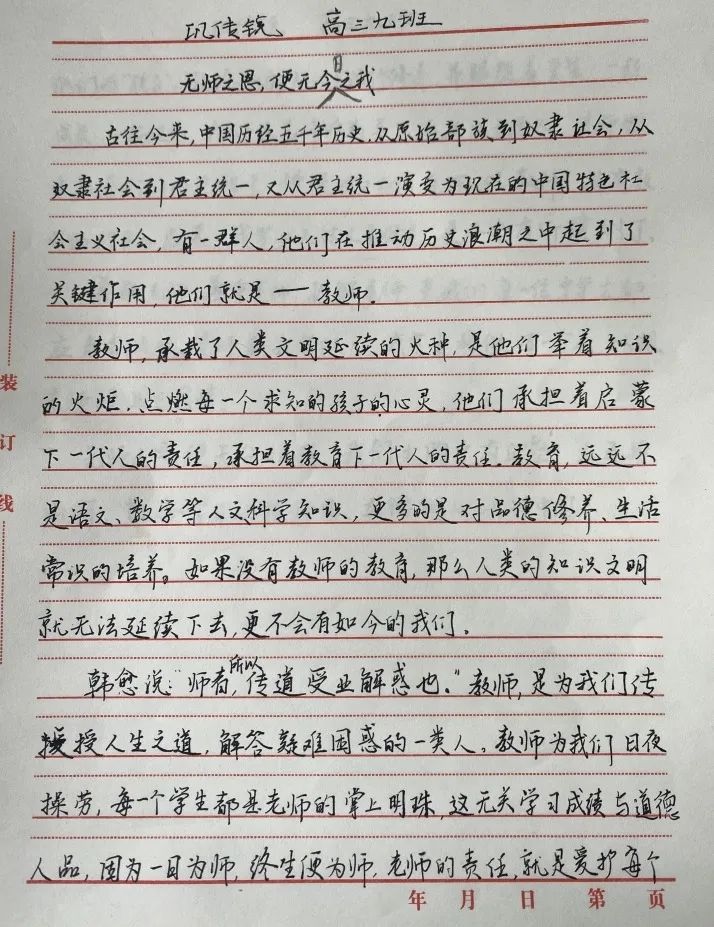 巩传锐 高三九班
无师之恩，便无今日之我
古往今来，中国历经五千年历史，从原始部族到奴隶社会，从
奴隶社会到君主统一，又从君主统一演变为现在的中国特色社
会主义社会，有一群人，他们在推动历史浪潮之中起到了
关键作用，他们就是——教师．
教师，承载了人类文明延续的火种，是他们举着知识
的火炬，点燃每一个求知的孩子的心灵，他们承担着启蒙
下一代人的责任，承担着教育下一代人的责任．教育，远远不
是语文、数学等人文科学知识，更多的是对品德修养、生活
常识的培养。如果没有教师的教育，那么人类的知识文明
就无法延续下去，更不会有如今的我们．
韩愈说："师者，所以传道受业解惑也．"教师，是为我们传
授人生之道，解答疑难困惑的一类人．教师为我们日夜
操劳，每一个学生都是老师的掌上明珠，这无关学习成绩与道德
人品，因为一日为师，终生便为师，老师的责任，就是爱护每个
年 月 日 第 页
装
订
线